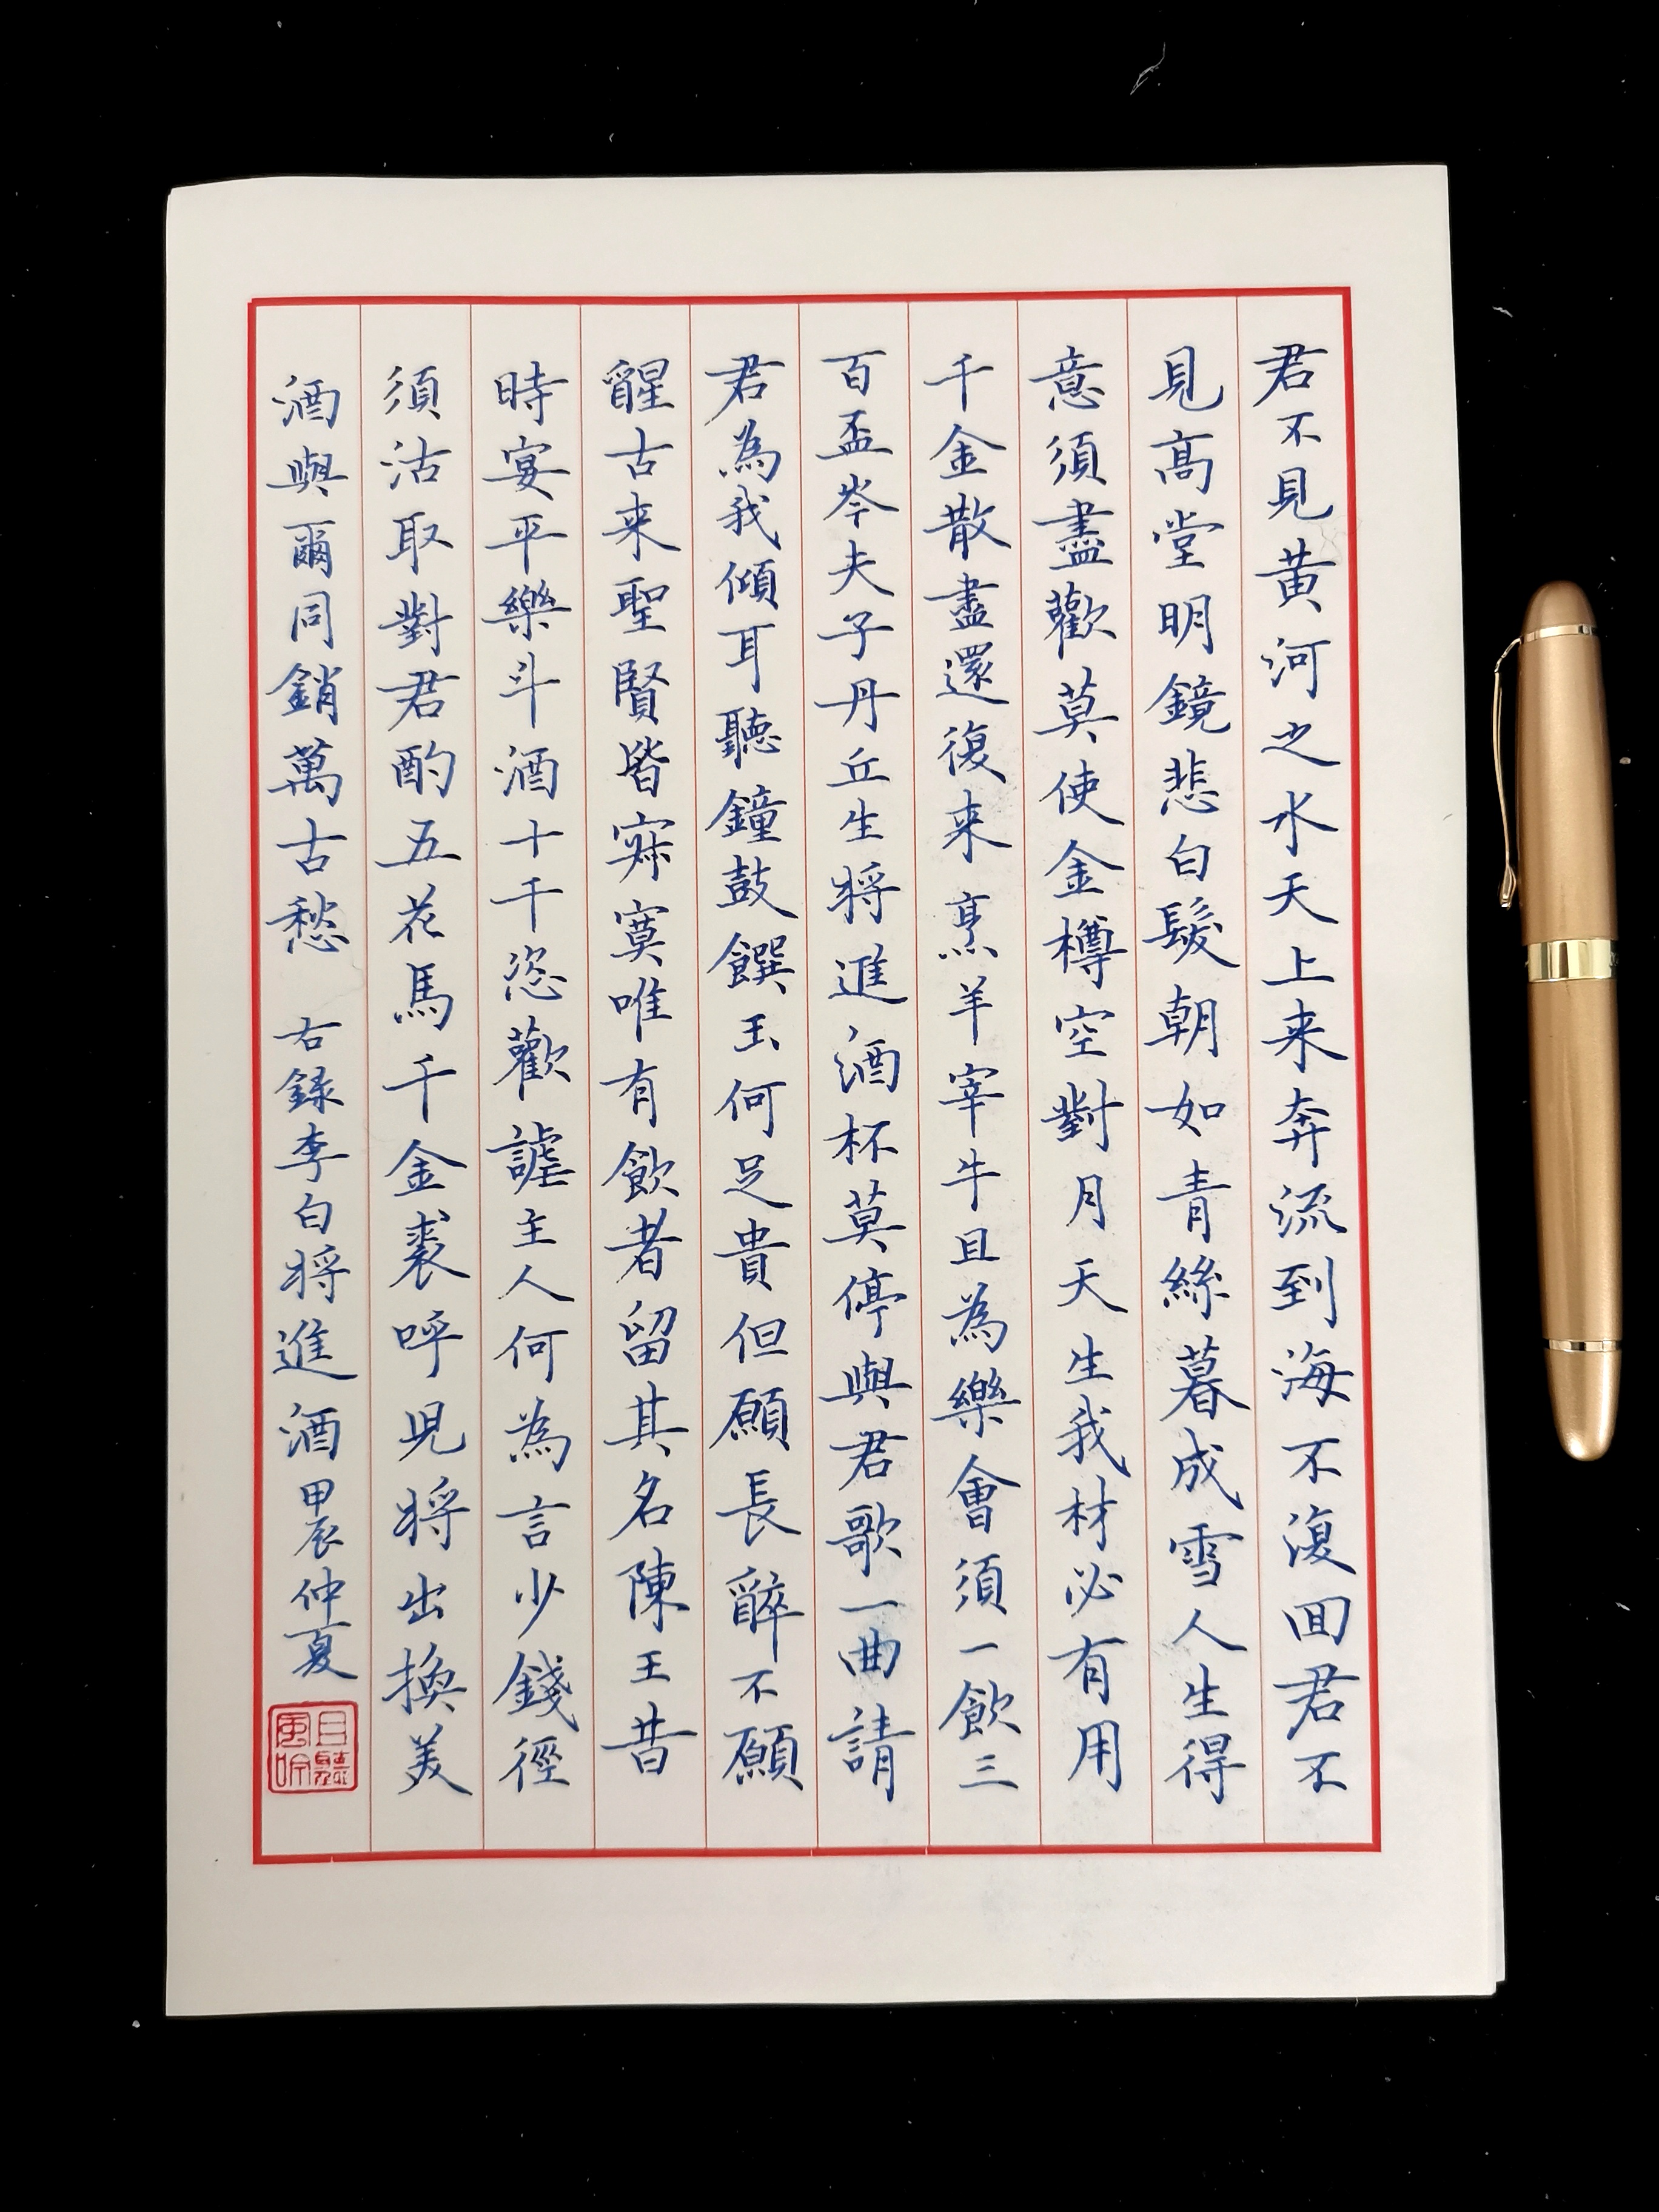 君不見黃河之水天上来奔流到海不復回君不
見高堂明鏡悲白髮朝如青絲暮成雪人生得
意須盡歡莫使金樽空對月天生我材必有用
千金散盡還復来烹羊宰牛且為樂會須一飲三
百盃岑夫子丹丘生將進酒杯莫停與君歌一曲請
君為我傾耳聽鐘鼓饌玉何足貴但願長醉不願
醒古来聖賢皆寂寞唯有飲者留其名陳王昔
時宴平樂斗酒十千恣歡謔主人何為言少錢徑
須沽取對君酌五花馬千金裘呼兒將出換美
酒與爾同銷萬古愁 右錄李白將進酒甲辰仲夏
且聽風吟